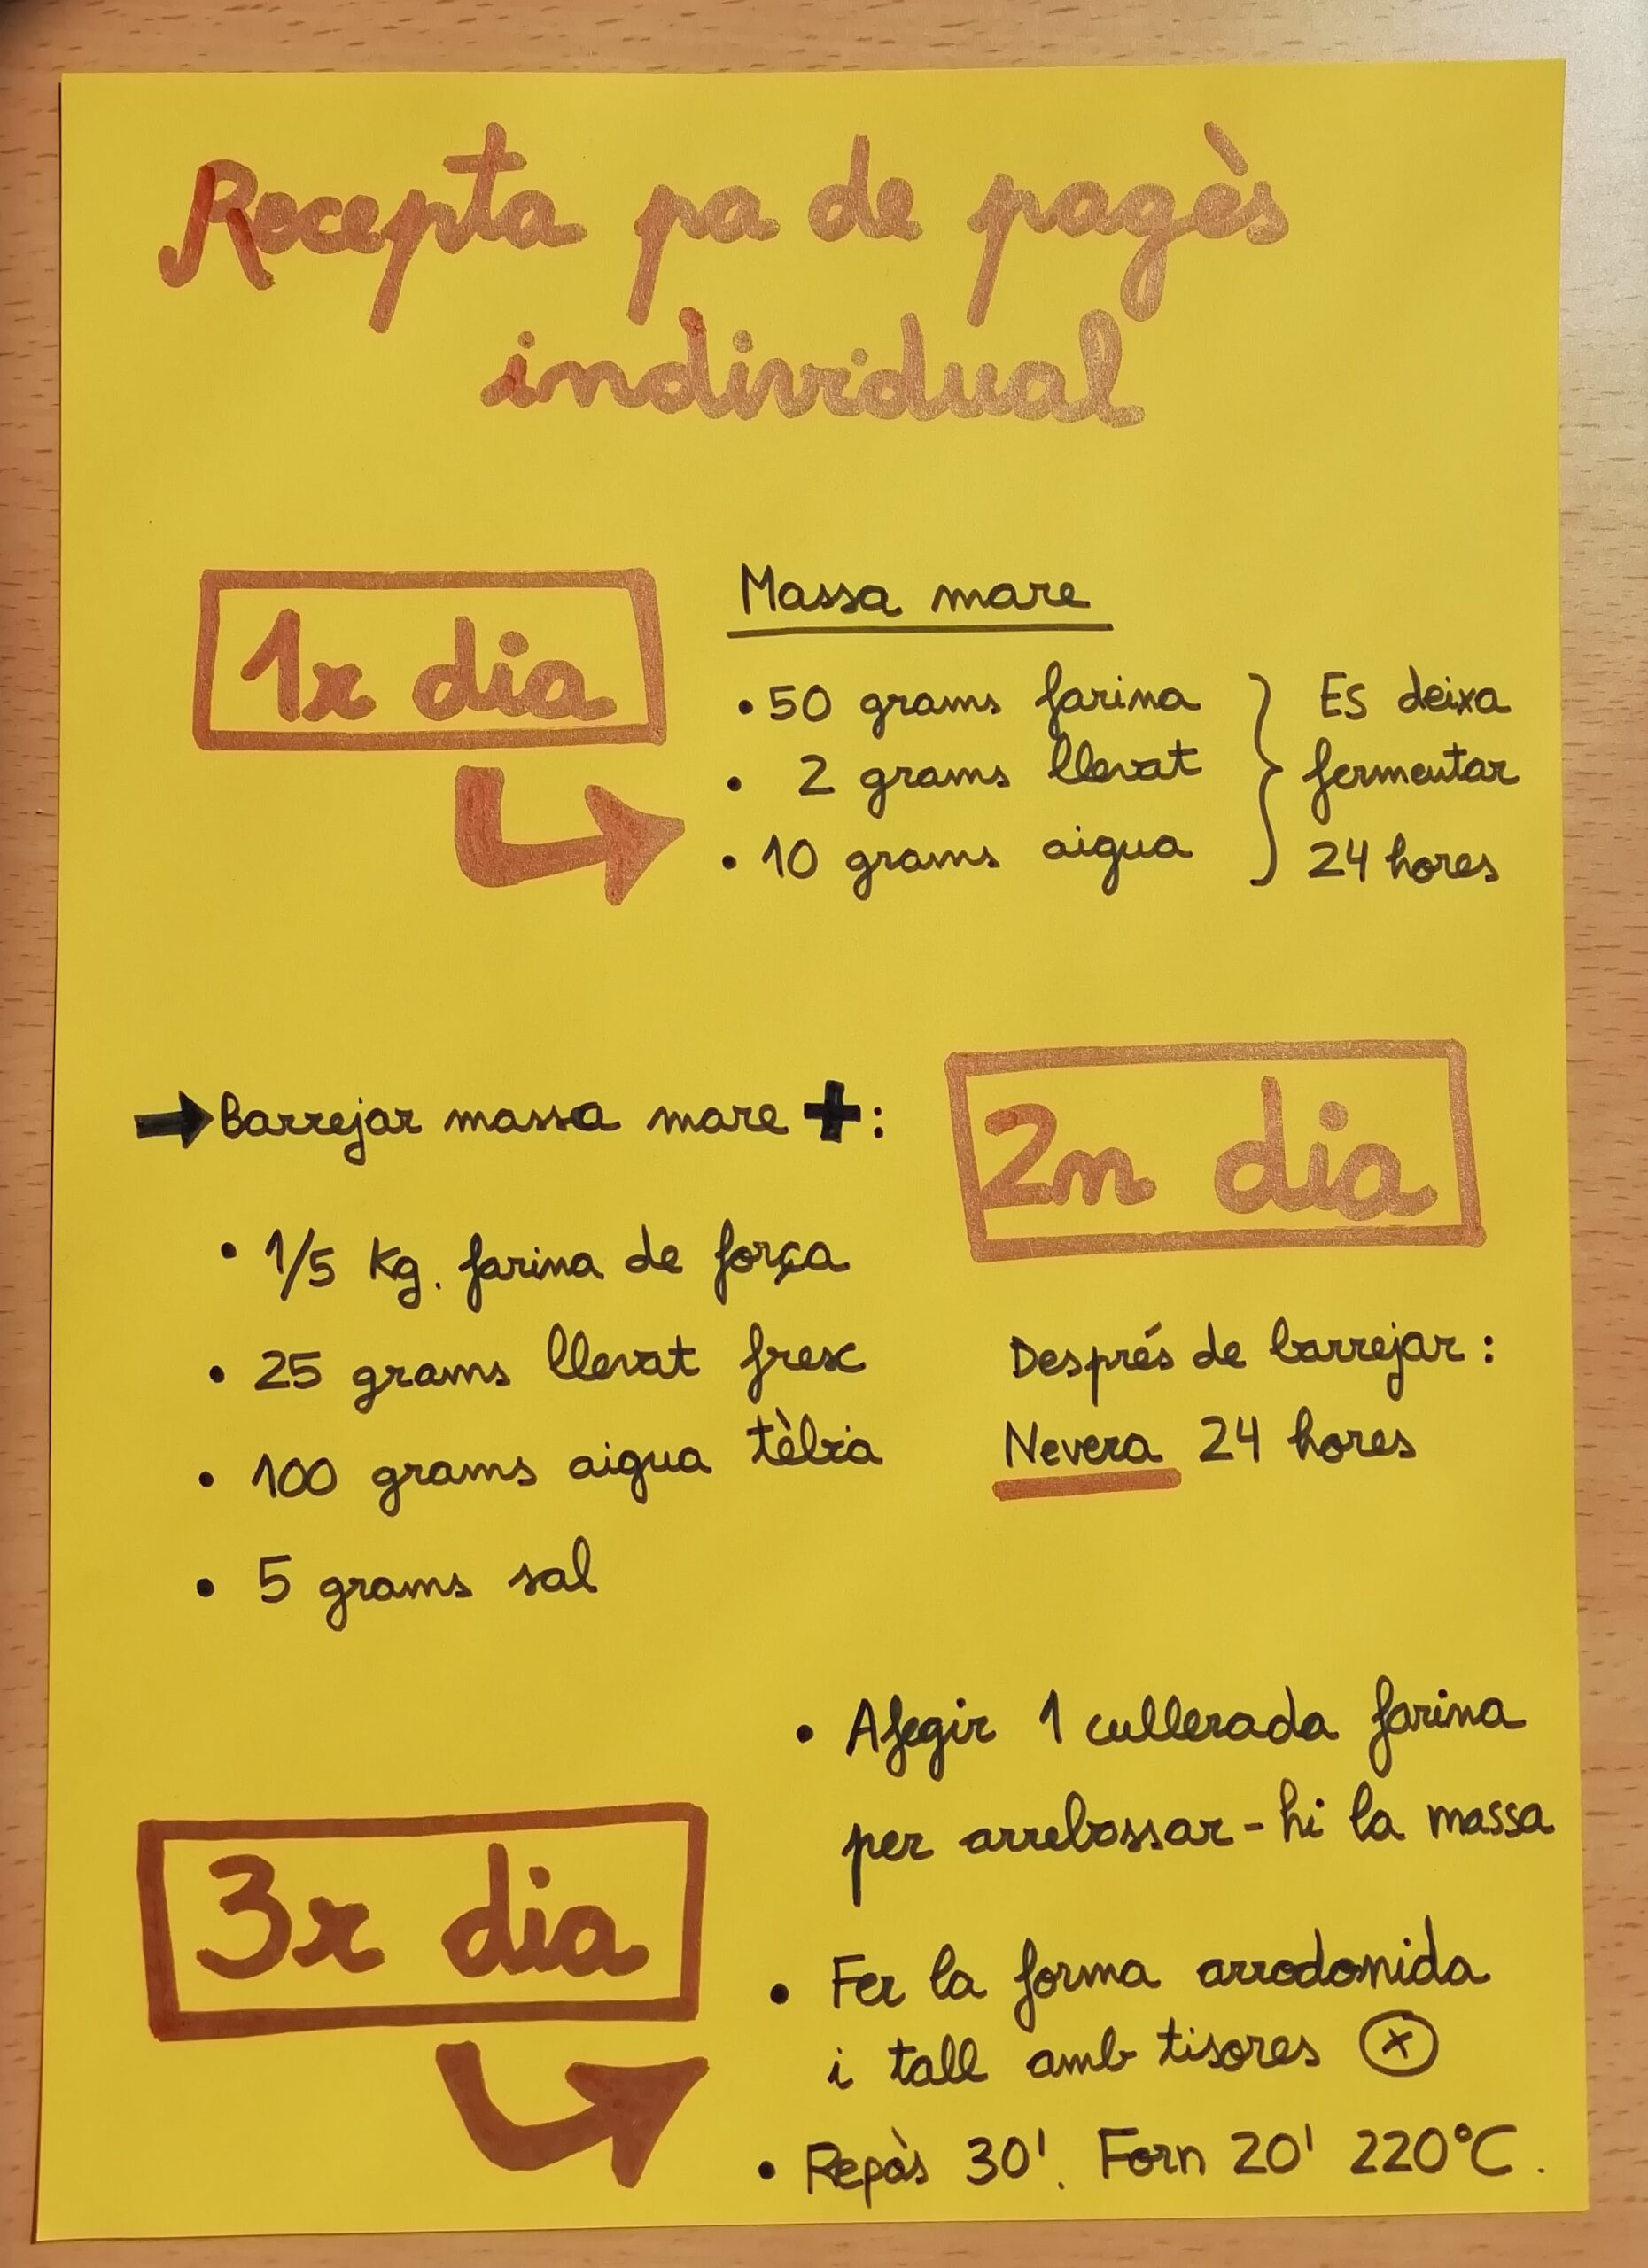 Recepta pa de pagès
individual
1r dia
Massa mare
• 50 grams farina
• 2 grams llevat
• 10 grams aigua
Es deixa
fermentar
24 hores
2n dia
➡ Barrejar massa mare +:
• 1/5 Kg. farina de força
• 25 grams llevat fresc
• 100 grams aigua tèbia
• 5 grams sal
Després de barrejar:
Nevera 24 hores
3r dia
• Afegir 1 cullerada farina
per arrebossar-hi la massa
• Fer la forma arrodonida
i tall amb tisores ⓧ
• Repòs 30'. Forn 20' 220°C.